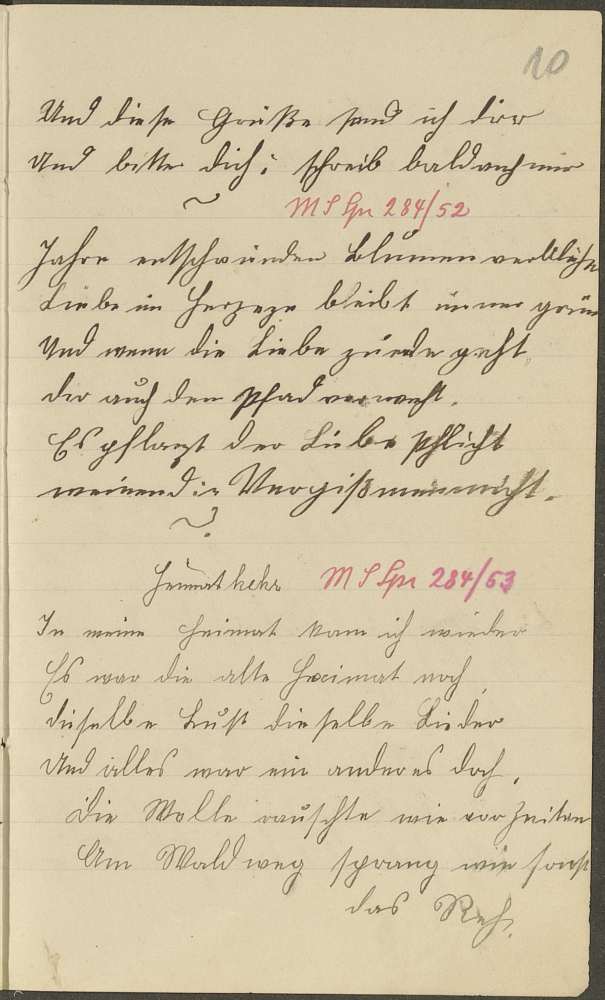 10
Und diese Grüße send ich dir
Und bitte dich: schreib bald auch mir
MS Spr 284/52
Jahre entschwinden Blumen verblühn
Liebe im Herzen bleibt immer grün
Und wenn die Liebe zuende geht,
dir auch den Pfad verweht.
Es pflanzt der Liebe schlicht
weinend die Vergißmeinnicht.
Heimatkehr MS Spr 284/53
In meine Heimat kam ich wieder
Es war die alte Heimat noch,
dieselbe Luft dieselbe Lieder
Und alles war ein anderes doch.
Die Welle rauschte wie vor Zeiten
Am Waldweg sprang wie sonst
das Reh.